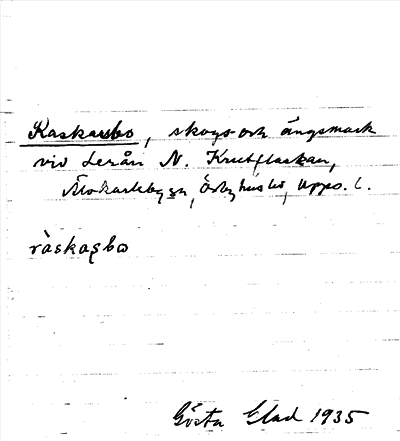 Kaskasbo, skogs- och ängsmark
vid Lerån N. Krutflaskan,
Älvkarlebyss, Örbyhus hd, Upps. l.
ràskagbo
Gösta Glad 1935